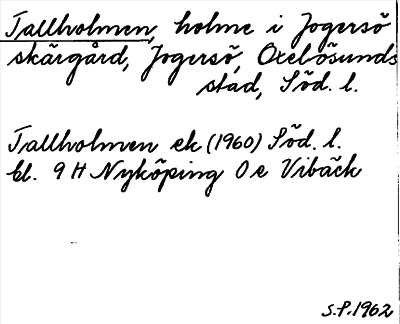 Tallholmen, holme i Jogersö
skärgård, Jogersö, Oxelösunds
stad, Söd. l.
Tallholmen ek (1960) Söd. l.
bl. 9 H Nyköping O e Vibäck
S.P. 1962